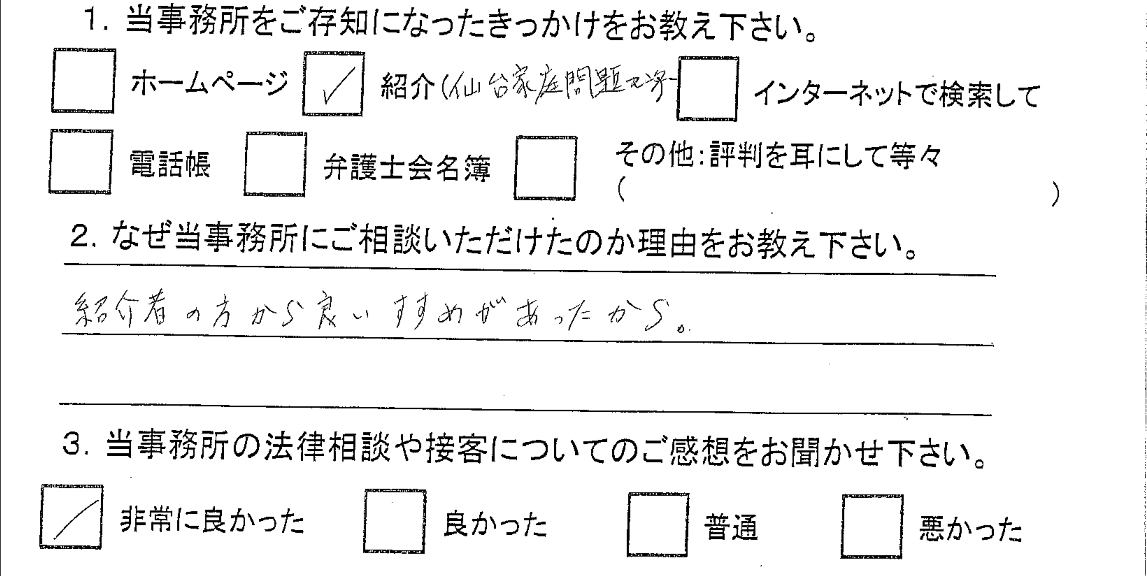 1. 当事務所をご存知になったきっかけをお教え下さい。
ホームページ ✓ 紹介(仙台家庭問題 インターネットで検索して
電話帳 弁護士会名簿 その他:評判を耳にして等々
( )
2. なぜ当事務所にご相談いただけたのか理由をお教え下さい。
紹介者の方から良いすすめがあったから。
3. 当事務所の法律相談や接客についてのご感想をお聞かせ下さい。
非常に良かった 良かった 普通 悪かった